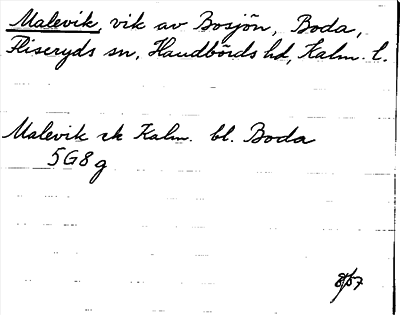 Malevik, vik av Bosjön, Boda,
Fliseryds sn, Handbörds hd, Kalm. l.
Malevik rk Kalm. bl. Boda
5G8g